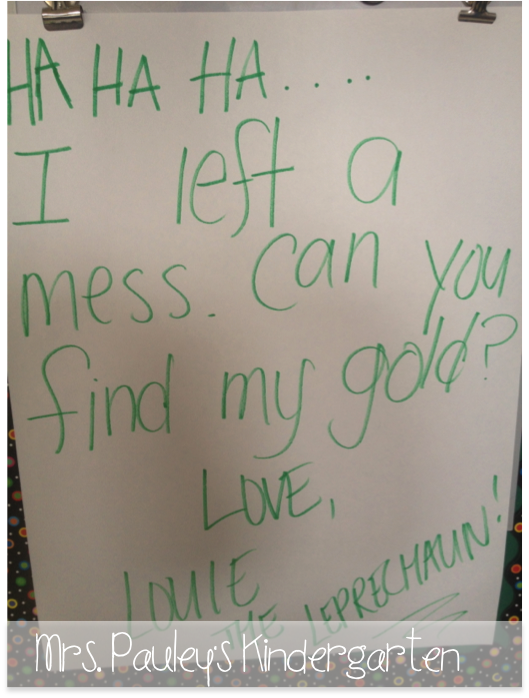 HA HA HA....
I left a
mess. Can you
find my gold?
LOVE,
LOUIE
THE LEPRECHAUN!
Mrs. Pauley's Kindergarten